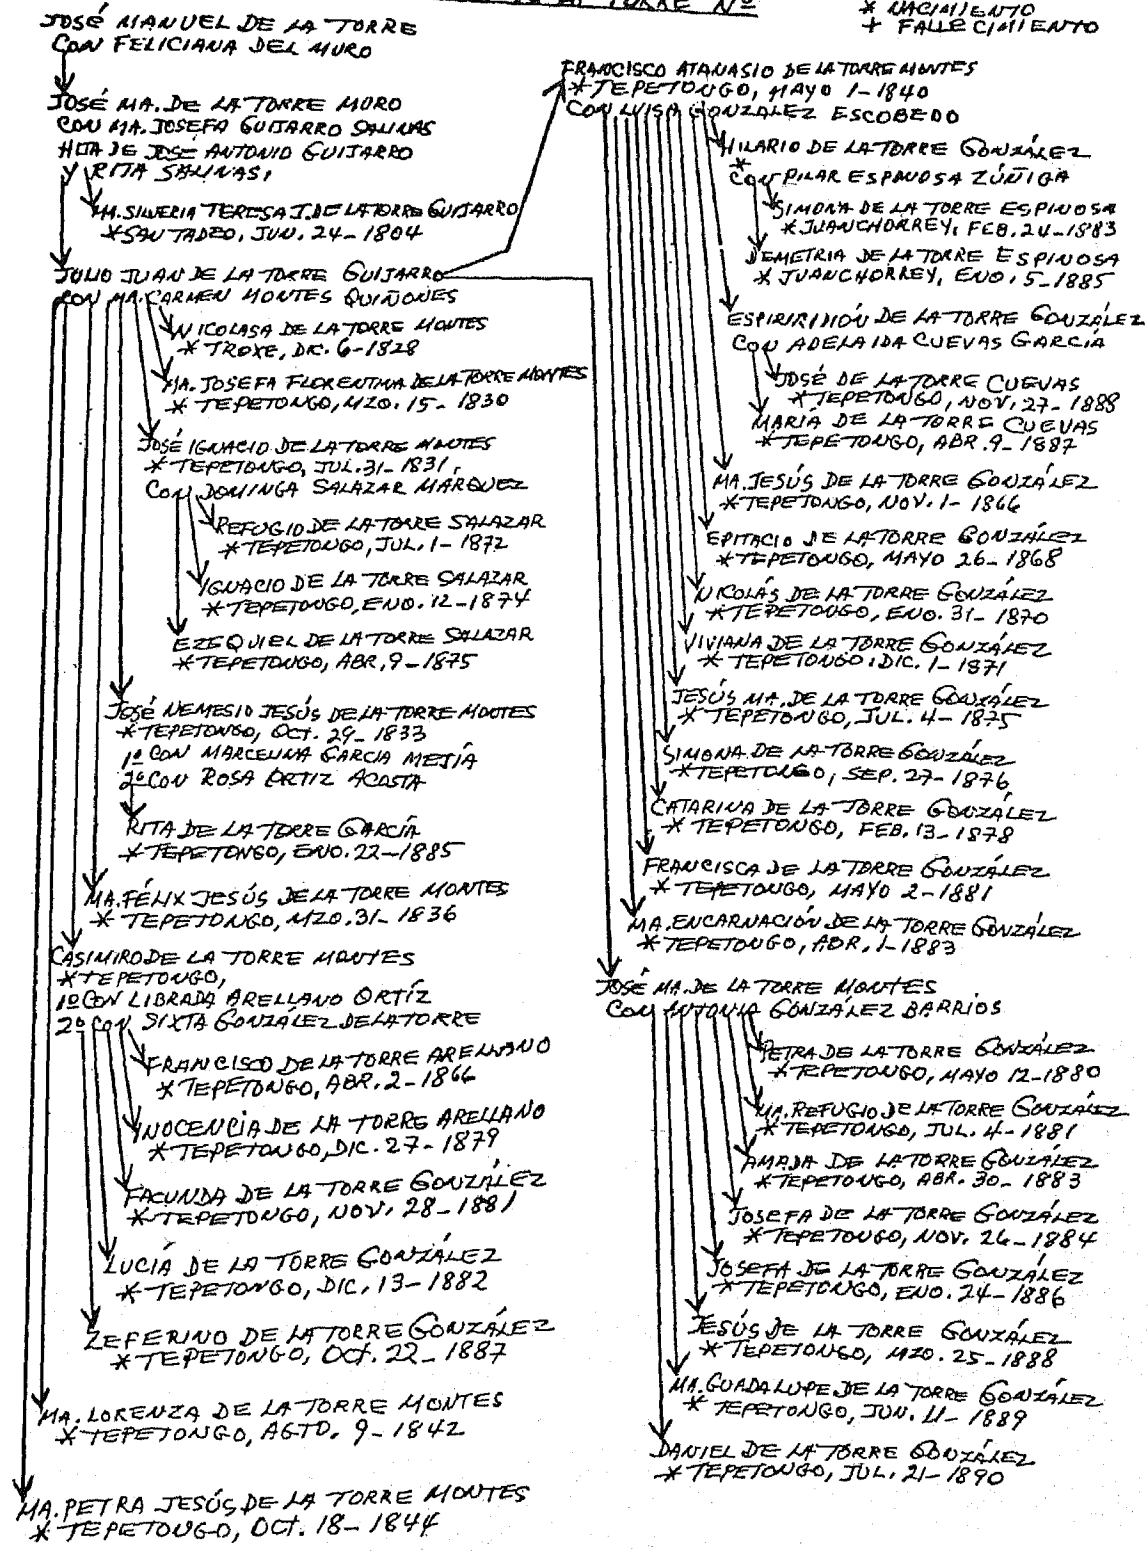 LA TORRE Nº
* NACIMIENTO
+ FALLECIMIENTO
JOSÉ MANUEL DE LA TORRE
CON FELICIANA DEL MURO
JOSÉ MA. DE LA TORRE MURO
CON MA. JOSEFA GUIJARRO SALINAS
HIJA DE JOSÉ ANTONIO GUIJARRO
Y RITA SALINAS,
MA. SILVERIA TERESA J. DE LA TORRE GUIJARRO
* SAN TADEO, JUN. 24-1804
JULIO JUAN DE LA TORRE GUIJARRO
CON MA. CARMEN MONTES QUIÑONES
NICOLASA DE LA TORRE MONTES
* TROXE, DIC. 6-1828
MA. JOSEFA FLORENTINA DE LA TORRE MONTES
* TEPETONGO, MZO. 15-1830
JOSÉ IGNACIO DE LA TORRE MONTES
* TEPETONGO, JUL. 31-1831,
CON DOMINGA SALAZAR MARQUEZ
REFUGIO DE LA TORRE SALAZAR
* TEPETONGO, JUL. 1-1872
IGNACIO DE LA TORRE SALAZAR
* TEPETONGO, ENO. 12-1874
EZEQUIEL DE LA TORRE SALAZAR
* TEPETONGO, ABR. 9-1875
JOSÉ NEMESIO JESÚS DE LA TORRE MONTES
* TEPETONGO, OCT. 29-1833
1º CON MARCELINA GARCIA MEJÍA
2º CON ROSA ORTIZ ACOSTA
RITA DE LA TORRE GARCÍA
* TEPETONGO, ENO. 22-1885
MA. FÉLIX JESÚS DE LA TORRE MONTES
* TEPETONGO, MZO. 31-1836
CASIMIRO DE LA TORRE MONTES
* TEPETONGO,
1º CON LIBRADA ARELLANO ORTÍZ
2º CON SIXTA GONZÁLEZ DE LA TORRE
FRANCISCO DE LA TORRE ARELLANO
* TEPETONGO, ABR. 2-1866
INOCENCIA DE LA TORRE ARELLANO
* TEPETONGO, DIC. 27-1879
FACUNDA DE LA TORRE GONZÁLEZ
* TEPETONGO, NOV. 28-1881
LUCIÁ DE LA TORRE GONZÁLEZ
* TEPETONGO, DIC. 13-1882
ZEFERINO DE LA TORRE GONZÁLEZ
* TEPETONGO, OCT. 22-1887
MA. LORENZA DE LA TORRE MONTES
* TEPETONGO, AGTO. 9-1842
MA. PETRA JESÚS DE LA TORRE MONTES
* TEPETONGO, OCT. 18-1844
FRANCISCO ATANASIO DE LA TORRE MONTES
* TEPETONGO, MAYO 1-1840
CON LUISA GONZALEZ ESCOBEDO
HILARIO DE LA TORRE GONZÁLEZ
*
CON PILAR ESPINOSA ZÚÑIGA
SIMONA DE LA TORRE ESPINOSA
* JUANCHORREY, FEB. 24-1883
DEMETRIA DE LA TORRE ESPINOSA
* JUANCHORREY, ENO. 5-1885
ESPIRIRIDIÓN DE LA TORRE GONZÁLEZ
CON ADELAIDA CUEVAS GARCIÁ
JOSÉ DE LA TORRE CUEVAS
* TEPETONGO, NOV. 27-1888
MARIÁ DE LA TORRE CUEVAS
* TEPETONGO, ABR. 9-1887
MA. JESÚS DE LA TORRE GONZÁLEZ
* TEPETONGO, NOV. 1-1866
EPITACIO DE LA TORRE GONZÁLEZ
* TEPETONGO, MAYO 26-1868
NICOLÁS DE LA TORRE GONZÁLEZ
* TEPETONGO, ENO. 31-1870
VIVIANA DE LA TORRE GONZÁLEZ
* TEPETONGO, DIC. 1-1871
JESÚS MA. DE LA TORRE GONZÁLEZ
* TEPETONGO, JUL. 4-1875
SIMONA DE LA TORRE GONZÁLEZ
* TEPETONGO, SEP. 27-1876
CATARINA DE LA TORRE GONZÁLEZ
* TEPETONGO, FEB. 13-1878
FRANCISCA DE LA TORRE GONZÁLEZ
* TEPETONGO, MAYO 2-1881
MA. ENCARNACIÓN DE LA TORRE GONZÁLEZ
* TEPETONGO, ABR. 1-1883
JOSÉ MA. DE LA TORRE MONTES
CON ANTONIA GONZÁLEZ BARRIOS
PETRA DE LA TORRE GONZÁLEZ
* TEPETONGO, MAYO 12-1880
MA. REFUGIO DE LA TORRE GONZÁLEZ
* TEPETONGO, JUL. 4-1881
AMADA DE LA TORRE GONZÁLEZ
* TEPETONGO, ABR. 30-1883
JOSEFA DE LA TORRE GONZÁLEZ
* TEPETONGO, NOV. 26-1884
JOSEFA DE LA TORRE GONZÁLEZ
* TEPETONGO, ENO. 24-1886
JESÚS DE LA TORRE GONZÁLEZ
* TEPETONGO, MZO. 25-1888
MA. GUADALUPE DE LA TORRE GONZÁLEZ
* TEPETONGO, JUN. 11-1889
DANIEL DE LA TORRE GONZÁLEZ
* TEPETONGO, JUL. 21-1890